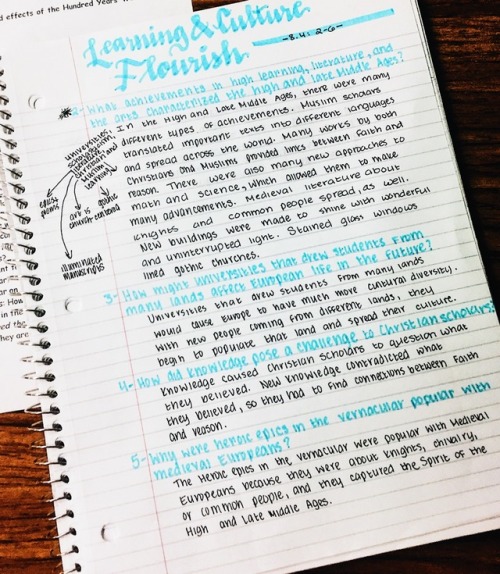 d effects of the Hundred Years
Learning & Culture
Flourish
-8.4: 2-6-
*2- What achievements in high learning, literature, and
the arts characterized the high and late Middle Ages?
In the High and Late Middle Ages, there were many
different types of achievements. Muslim scholars
translated important texts into different languages
and spread across the world. Many works by both
Christians and Muslims provided links between faith and
reason. There were also many new approaches to
math and science, which allowed them to make
many advancements. Medieval literature about
knights and common people spread, as well.
New buildings were made to shine with wonderful
and uninterrupted light. Stained glass windows
lined gothic churches.
universities,
Christian
learning
epics
poems
art is
gothic
church-centered
illuminated
manuscripts
3- How might universities that drew students from
many lands affect European life in the future?
Universities that drew students from many lands
would cause Europe to have much more cultural diversity.
With new people coming from different lands, they
begin to populate that land and spread their culture.
4- How did knowledge pose a challenge to Christian scholars?
Knowledge caused Christian scholars to question what
they believed. New knowledge contradicted what
they believed, so they had to find connections between faith
and reason.
5- Why were heroic epics in the vernacular popular with
medieval Europeans?
The heroic epics in the vernacular were popular with Medieval
Europeans because they were about knights, chivalry,
or common people, and they captured the spirit of the
High and Late Middle Ages.